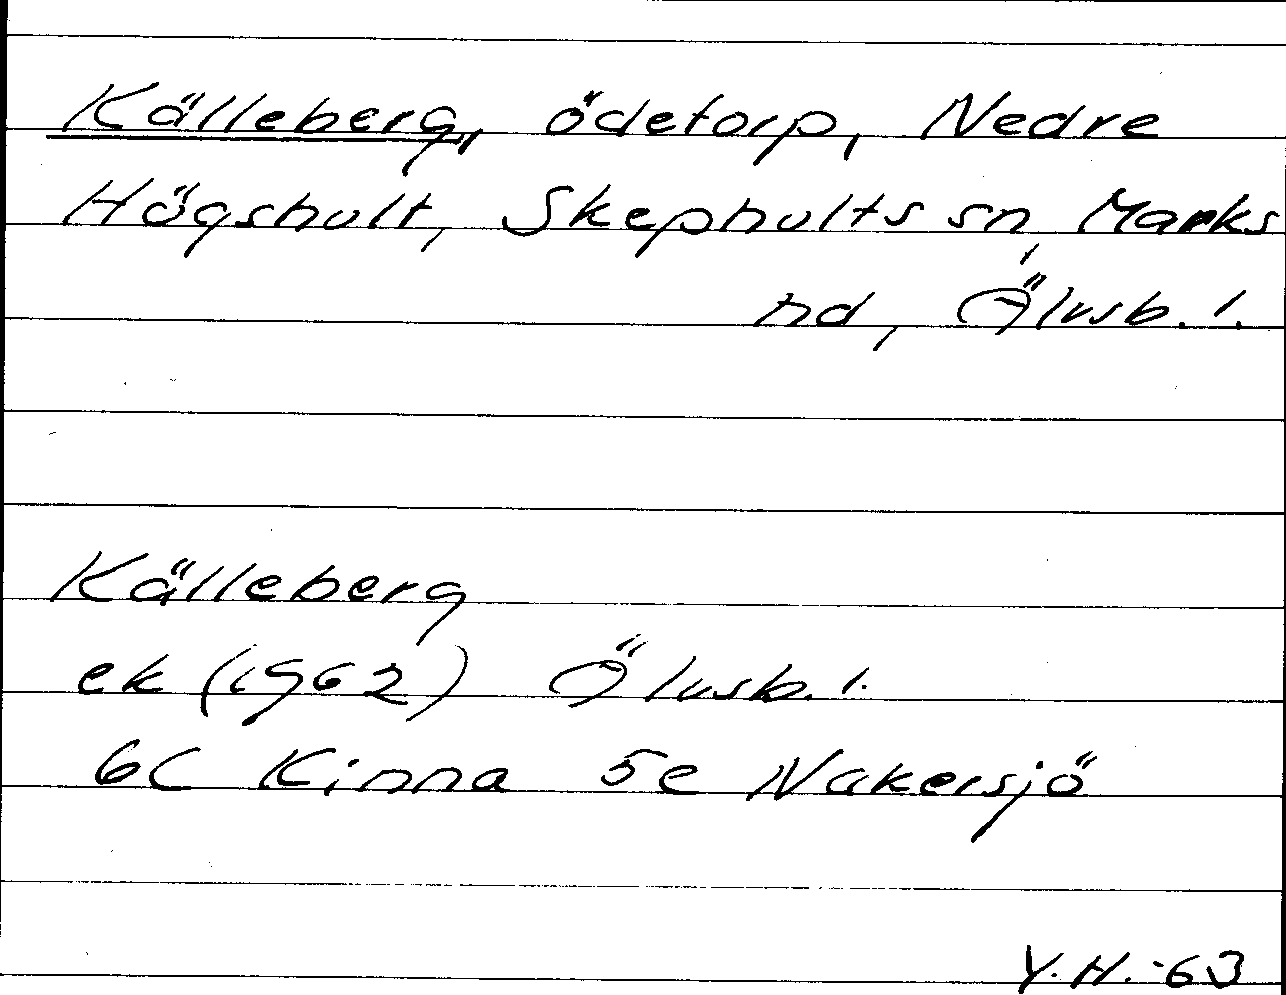 Källeberg, ödetorp, Nedre
Högshult, Skephults sn, Marks
hd, Älvsb. l.
Källeberg
ek (1962) Älvsb. l.
6C Kinna 5e Nakersjö
Y.H.-63